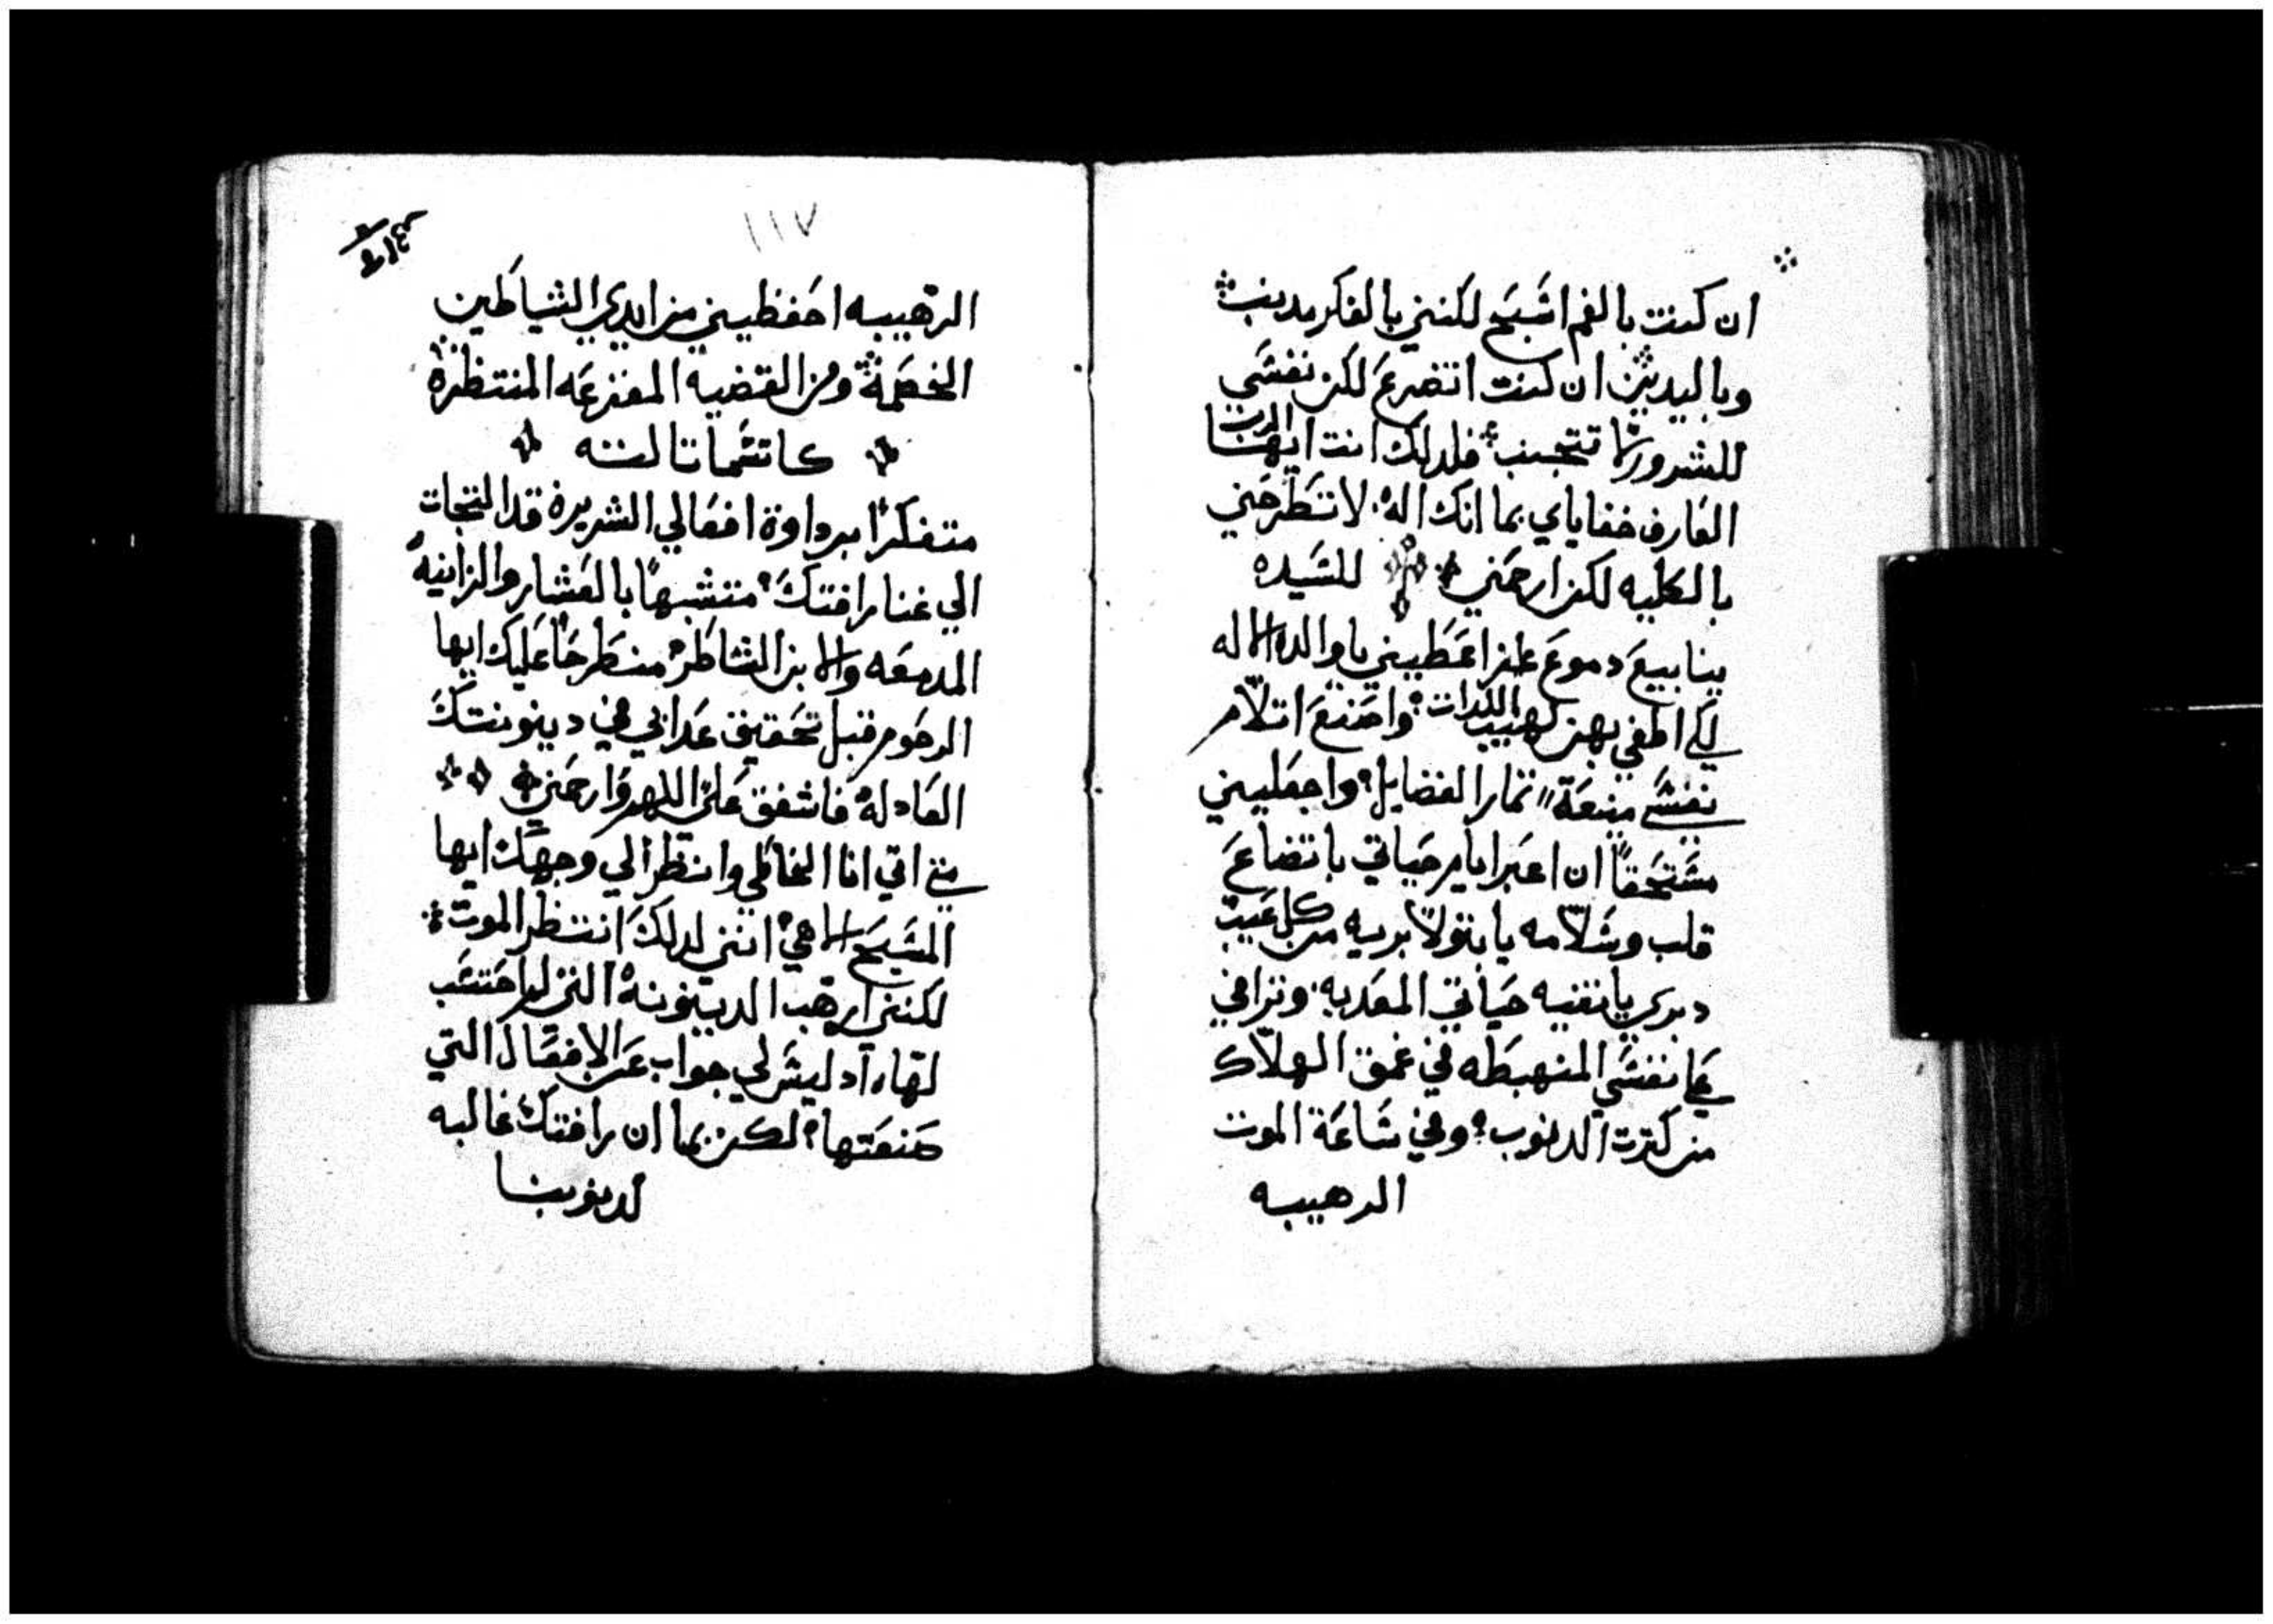 ان كنت بالفم اسبح لكنني بالفكر مدنب
وباليدين ان كنت اتضرع لكن نفسي
للشرور تتجنب فلدلك انت ايها الرب
العارف خفاياي بما انك اله لا تطرحني
بالكليه لكن ارحمني للسيده
ينابيع دموع اعطيني يا والدة الاله
لكي اطفي بهن لهيب اللدات واصنع اتلام
نفسي منبعة تمار الفضايل واجعليني
مستحقا ان اعبر ايام حياتي باتضاع
قلب وسلامه يا بتولا بريه من كل عيب
دبري يا نقيه حياتي المعدبه وترافي
على نفسي المنهبطه في عمق الهلاك
من كترت الدنوب وفي ساعة الموت
الرهيبه
١١٧
الرهيبه احفظيني من ايدي الشياطين
الخصمة ومن القضيه المفزعه المنتظرة
كاتسما تالته
متفكرا برداوة افعالي الشريرة قد التجات
الي غنا رافتك متشبها بالعشار والزانيه
المدمعه والابن الشاطر منطرحا عليك ايها
الرحوم قبل تحقيق عدابي في دينونتك
العادله فاشفق علي اللهم وارحمني
متي اتي انا الخاطي وانظر الي وجهك ايها
المسيح الاهي انني لدلك انتظر الموت
لكنني ارهب الدينونة التي لم احتسب
لها اد ليس لي جواب عن الافعال التي
صنعتها لكن بما ان رافتك غالبه
لدنوبنا